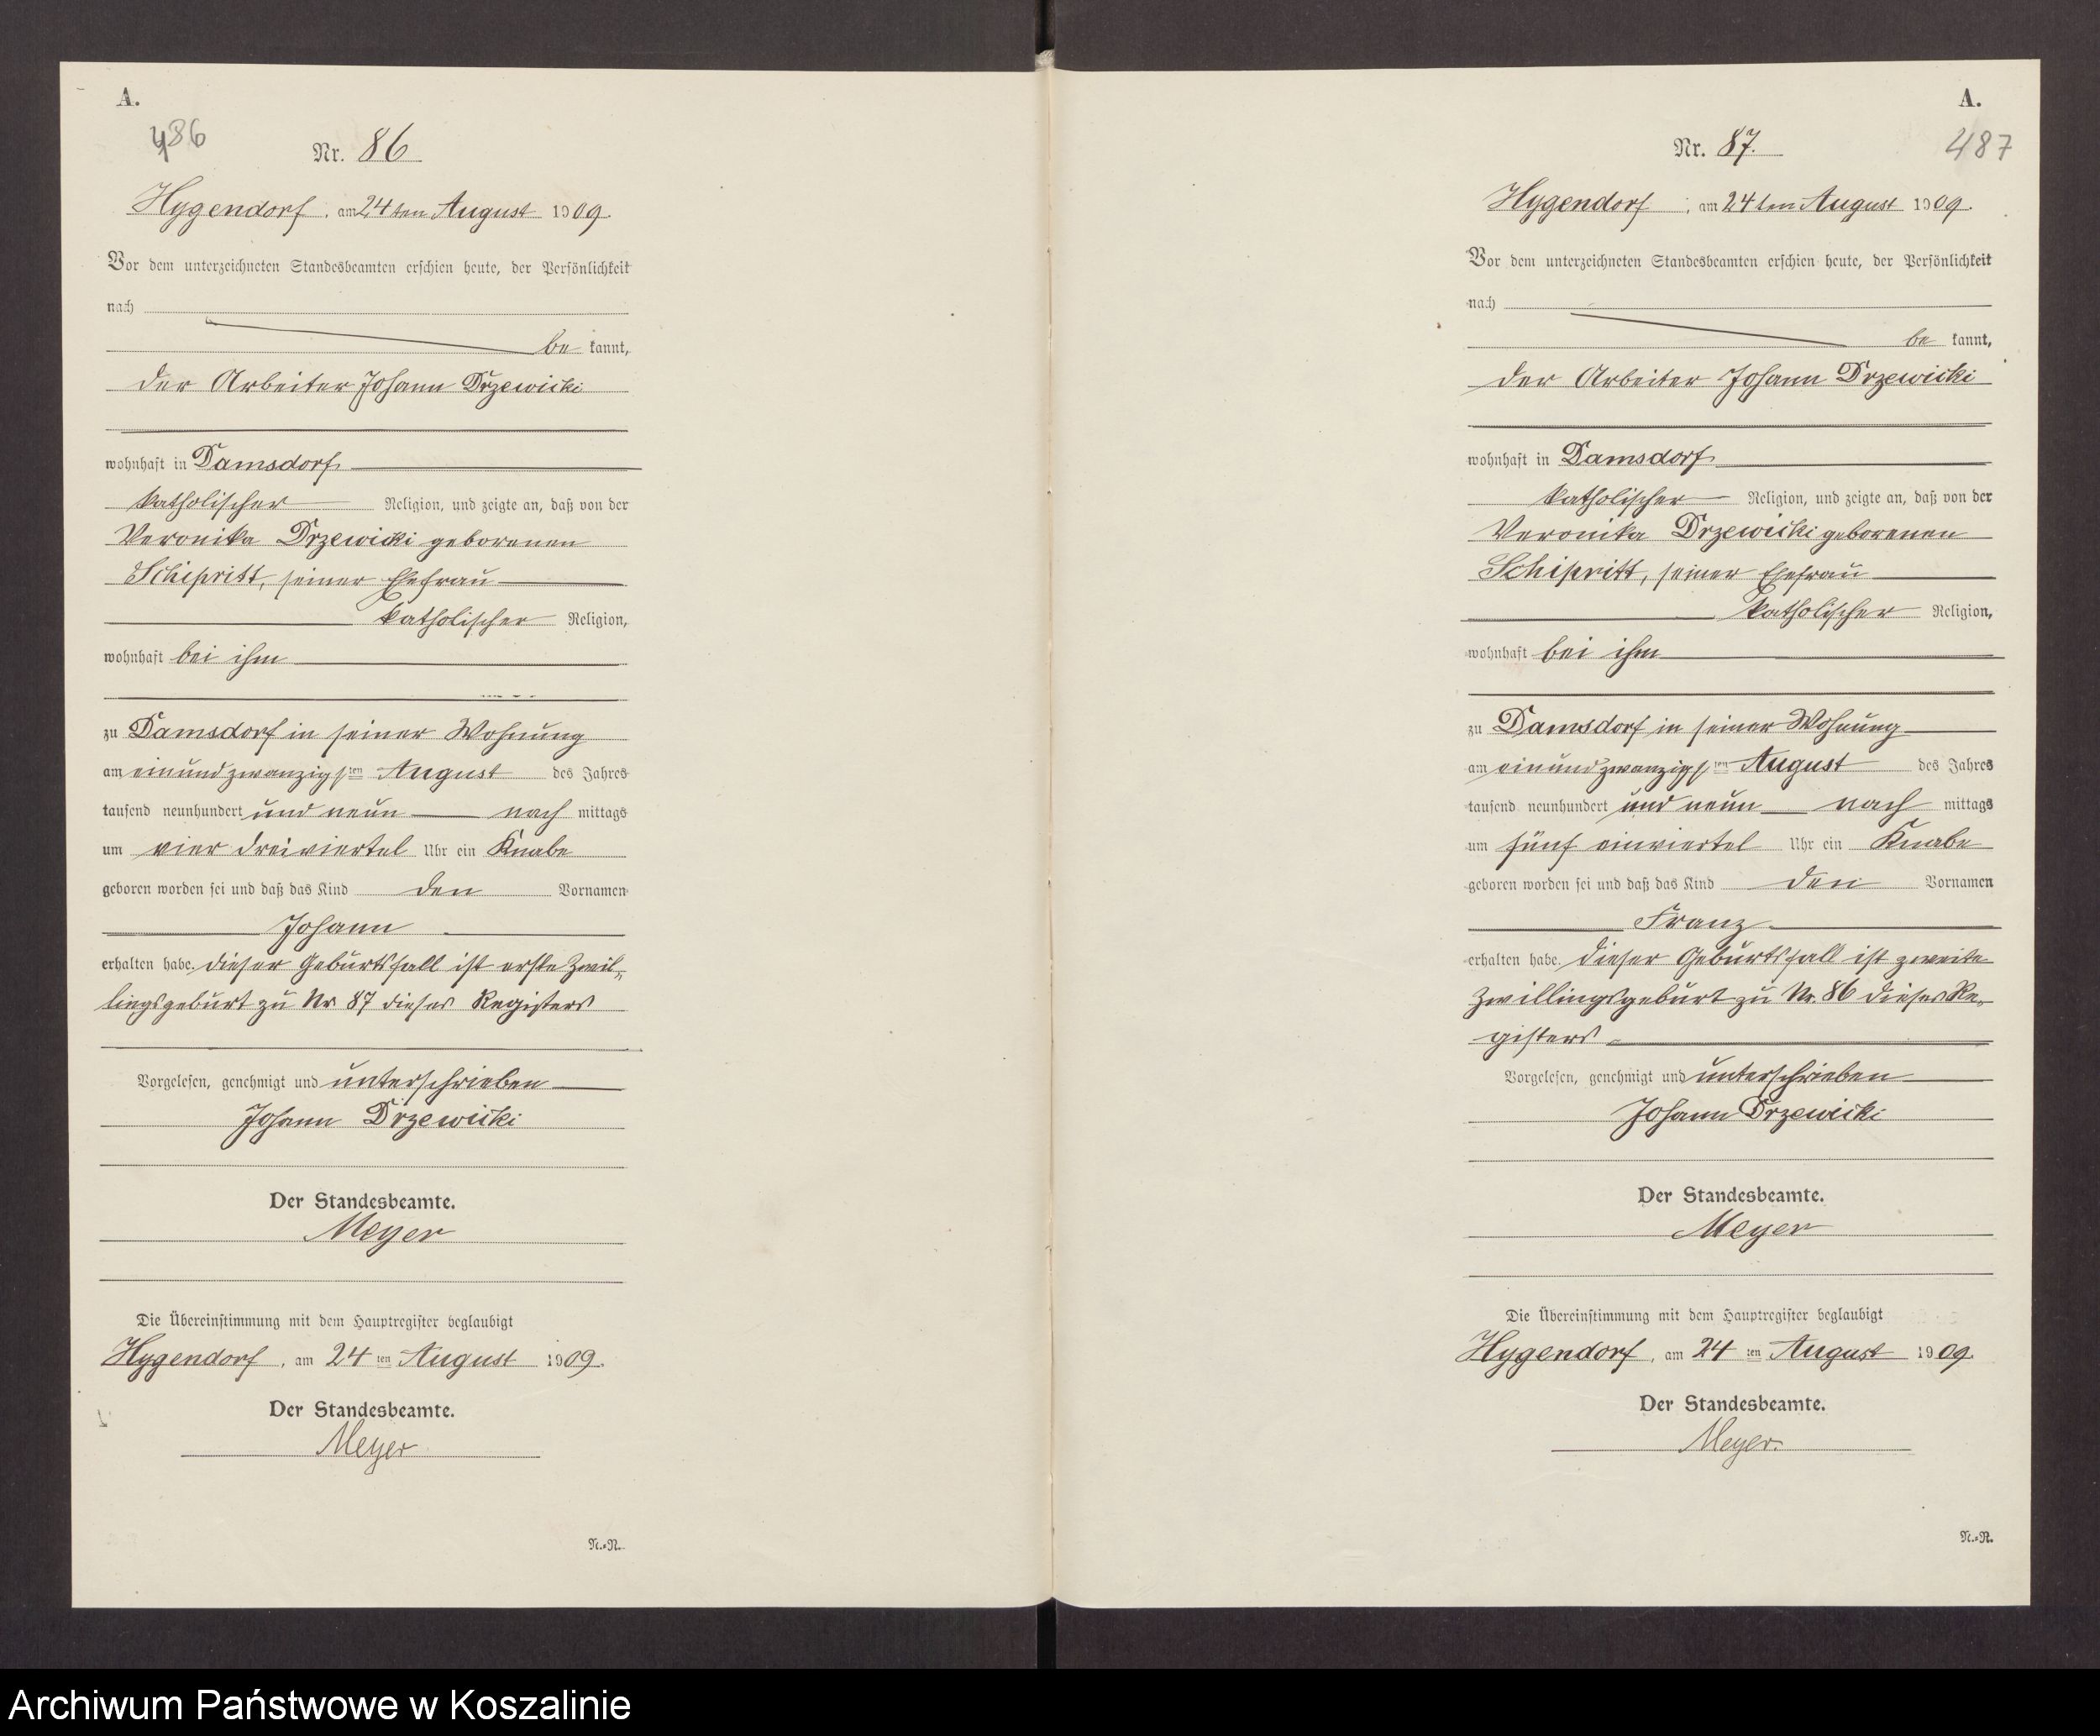 A.
486
Nr. 86
Hygendorf, am 24ten August 1909.
Vor dem unterzeichneten Standesbeamten erschien heute, der Persönlichkeit
nach
be kannt,
der Arbeiter Johann Drzewicki
wohnhaft in Damsdorf
katholischer Religion, und zeigte an, daß von der
Veronika Drzewicki geborenen
Schipritt, seiner Ehefrau
katholischer Religion,
wohnhaft bei ihm
zu Damsdorf in seiner Wohnung
am einundzwanzigsten August des Jahres
tausend neunhundert und neun nach mittags
um vier dreiviertel Uhr ein Knabe
geboren worden sei und daß das Kind den Vornamen
Johann
erhalten habe. Dieser Geburtsfall ist erste Zwil-
lingsgeburt zu Nr 87 dieses Registers
Vorgelesen, genehmigt und unterschrieben
Johann Drzewicki
Der Standesbeamte.
Meyer
Die Übereinstimmung mit dem Hauptregister beglaubigt
Hygendorf, am 24 ten August 1909.
Der Standesbeamte.
Meyer
N.=R.
A.
487
Nr. 87.
Hygendorf, am 24ten August 1909.
Vor dem unterzeichneten Standesbeamten erschien heute, der Persönlichkeit
nach
be kannt,
der Arbeiter Johann Drzewicki
wohnhaft in Damsdorf
katholischer Religion, und zeigte an, daß von der
Veronika Drzewicki geborenen
Schipritt, seiner Ehefrau
katholischer Religion,
wohnhaft bei ihm
zu Damsdorf in seiner Wohnung
am einundzwanzigsten August des Jahres
tausend neunhundert und neun nach mittags
um fünf einviertel Uhr ein Knabe
geboren worden sei und daß das Kind den Vornamen
Franz
erhalten habe. Dieser Geburtsfall ist zweite
Zwillingsgeburt zu Nr. 86 dieses Re-
gisters
Vorgelesen, genehmigt und unterschrieben
Johann Drzewicki
Der Standesbeamte.
Meyer
Die Übereinstimmung mit dem Hauptregister beglaubigt
Hygendorf, am 24 ten August 1909.
Der Standesbeamte.
Meyer.
N.=R.
Archiwum Państwowe w Koszalinie